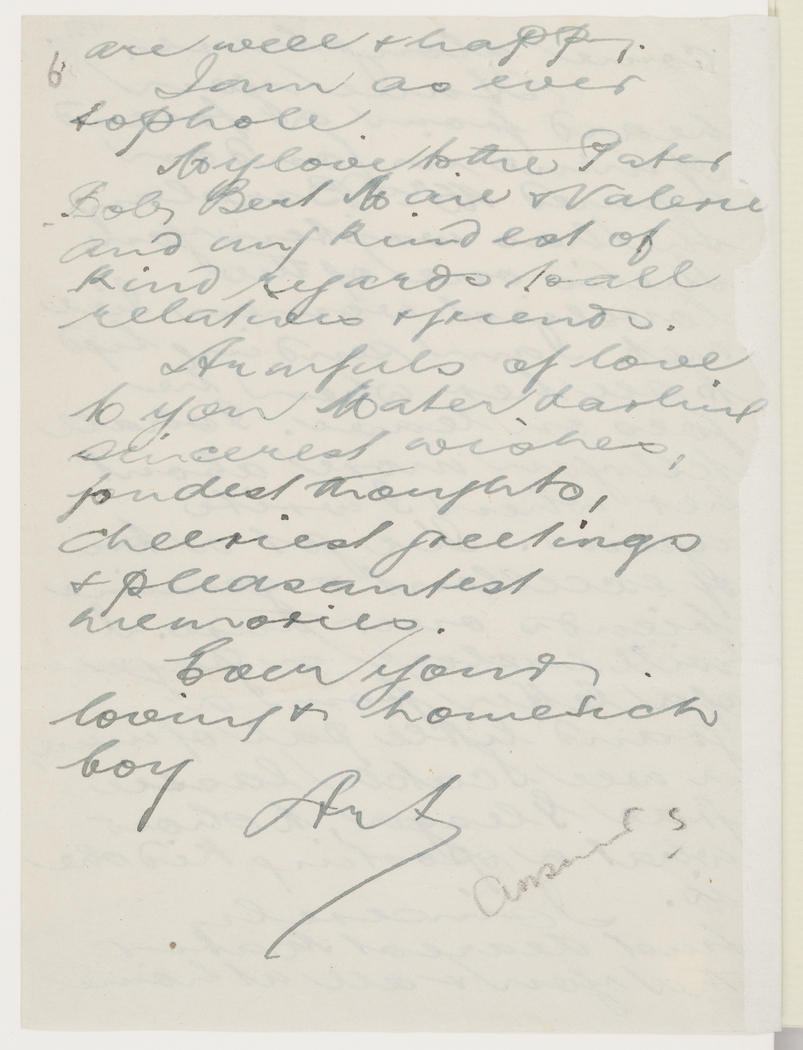 6
are well & happy.
I am as ever
tophole
My love to the Pater
Bob, Bert Marie & Valerie
and my kindest of
kind regards to all
relatives & friends.
Armfuls of love
to you Mater darling
sincerest wishes,
fondest thoughts,
cheeriest greetings
& pleasantest
memories.
Ever your
loving & homesick
boy
Art